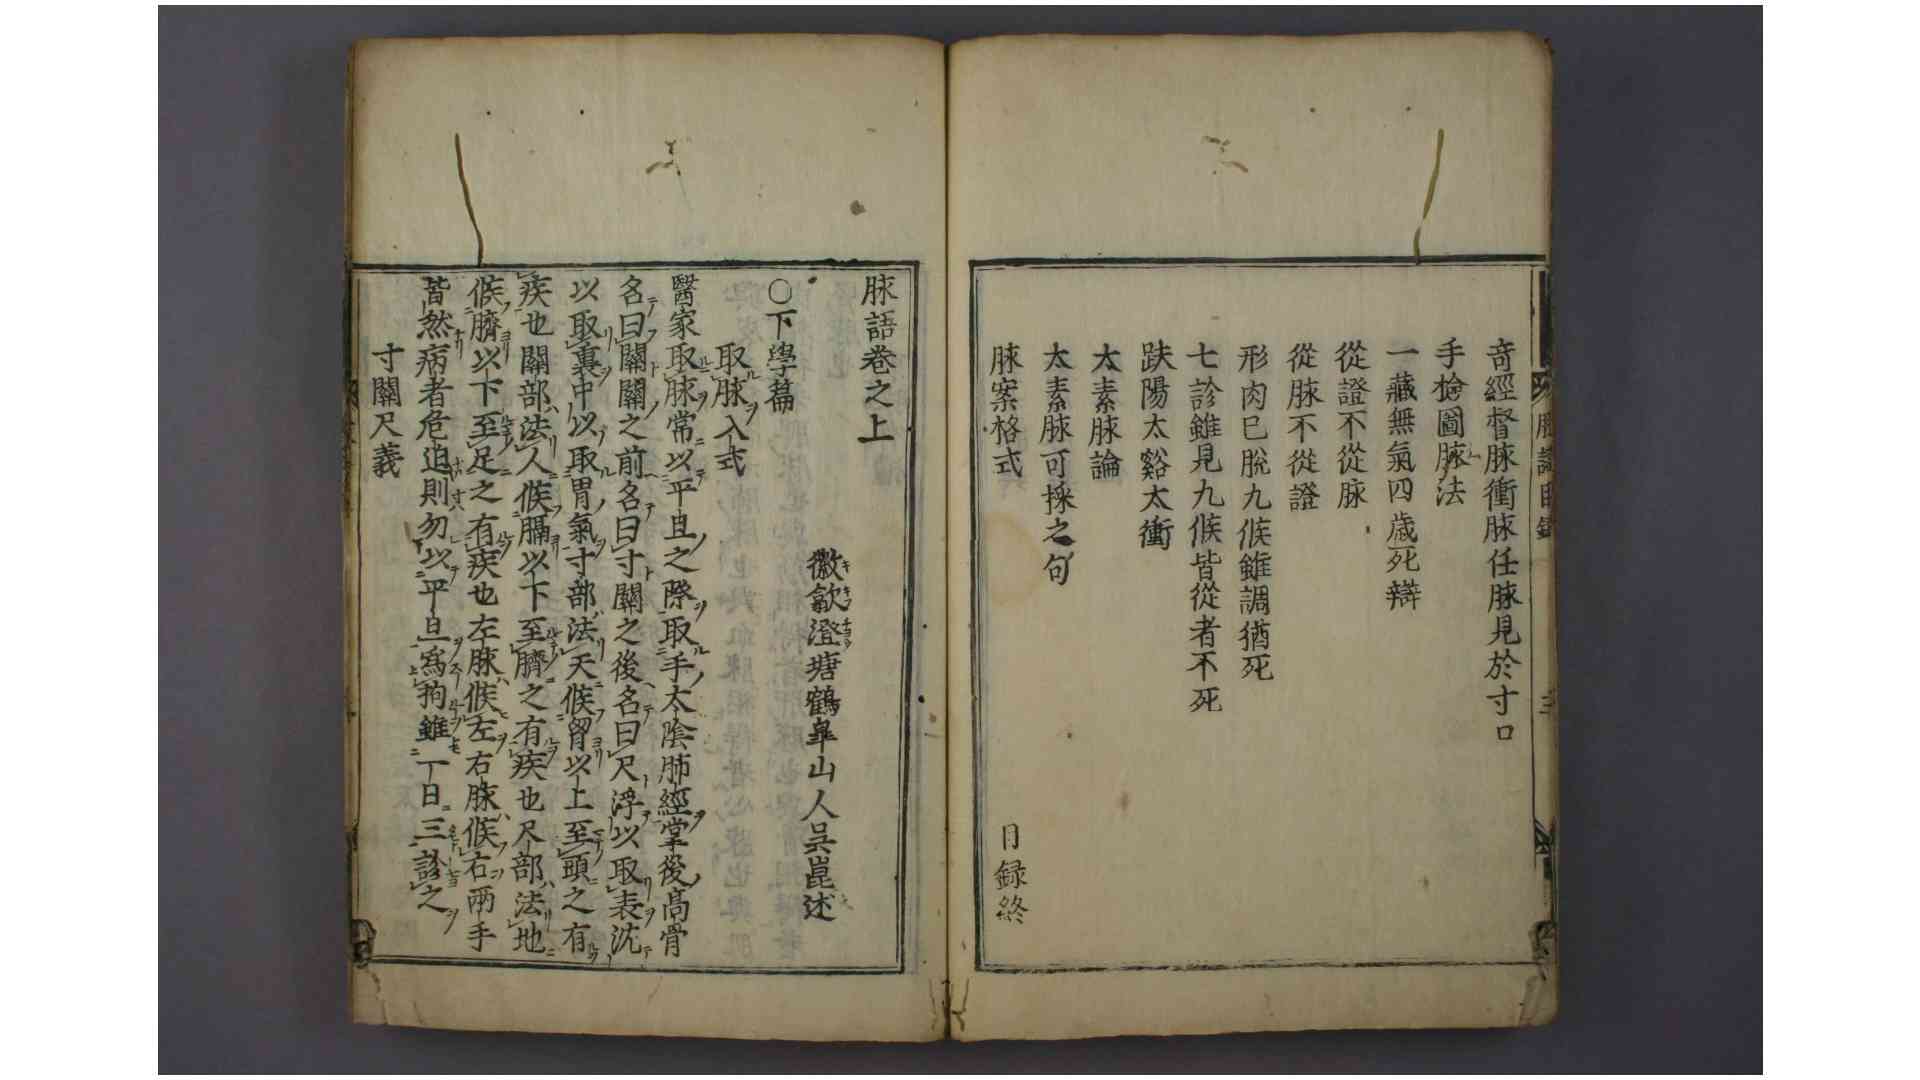 竒經督脉衝脉任脉見於寸口
手撿圖脉法
一藏無氣四歳死辯
從證不從脉
從脉不從證
形肉已脫九候雖調猶死
七診雖見九候皆從者不死
趺陽太谿太衝
太素脉論
太素脉可採之句
脉案格式
目録終
脉語卷之上
徽歙澄塘鶴皐山人吳崑述
○下學篇
取脉入式
醫家取脉常以平旦之際取手太陰肺經掌後高骨
名曰關關之前名曰寸關之後名曰尺浮以取表沈
以取裏中以取胃氣寸部法天候胷以上至頭之有
疾也關部法人候膈以下至臍之有疾也尺部法地
候臍以下至足之有疾也左脉候左右脉候右兩手
皆然病者危迫則勿以平旦爲拘雖一日三診之
寸關尺義